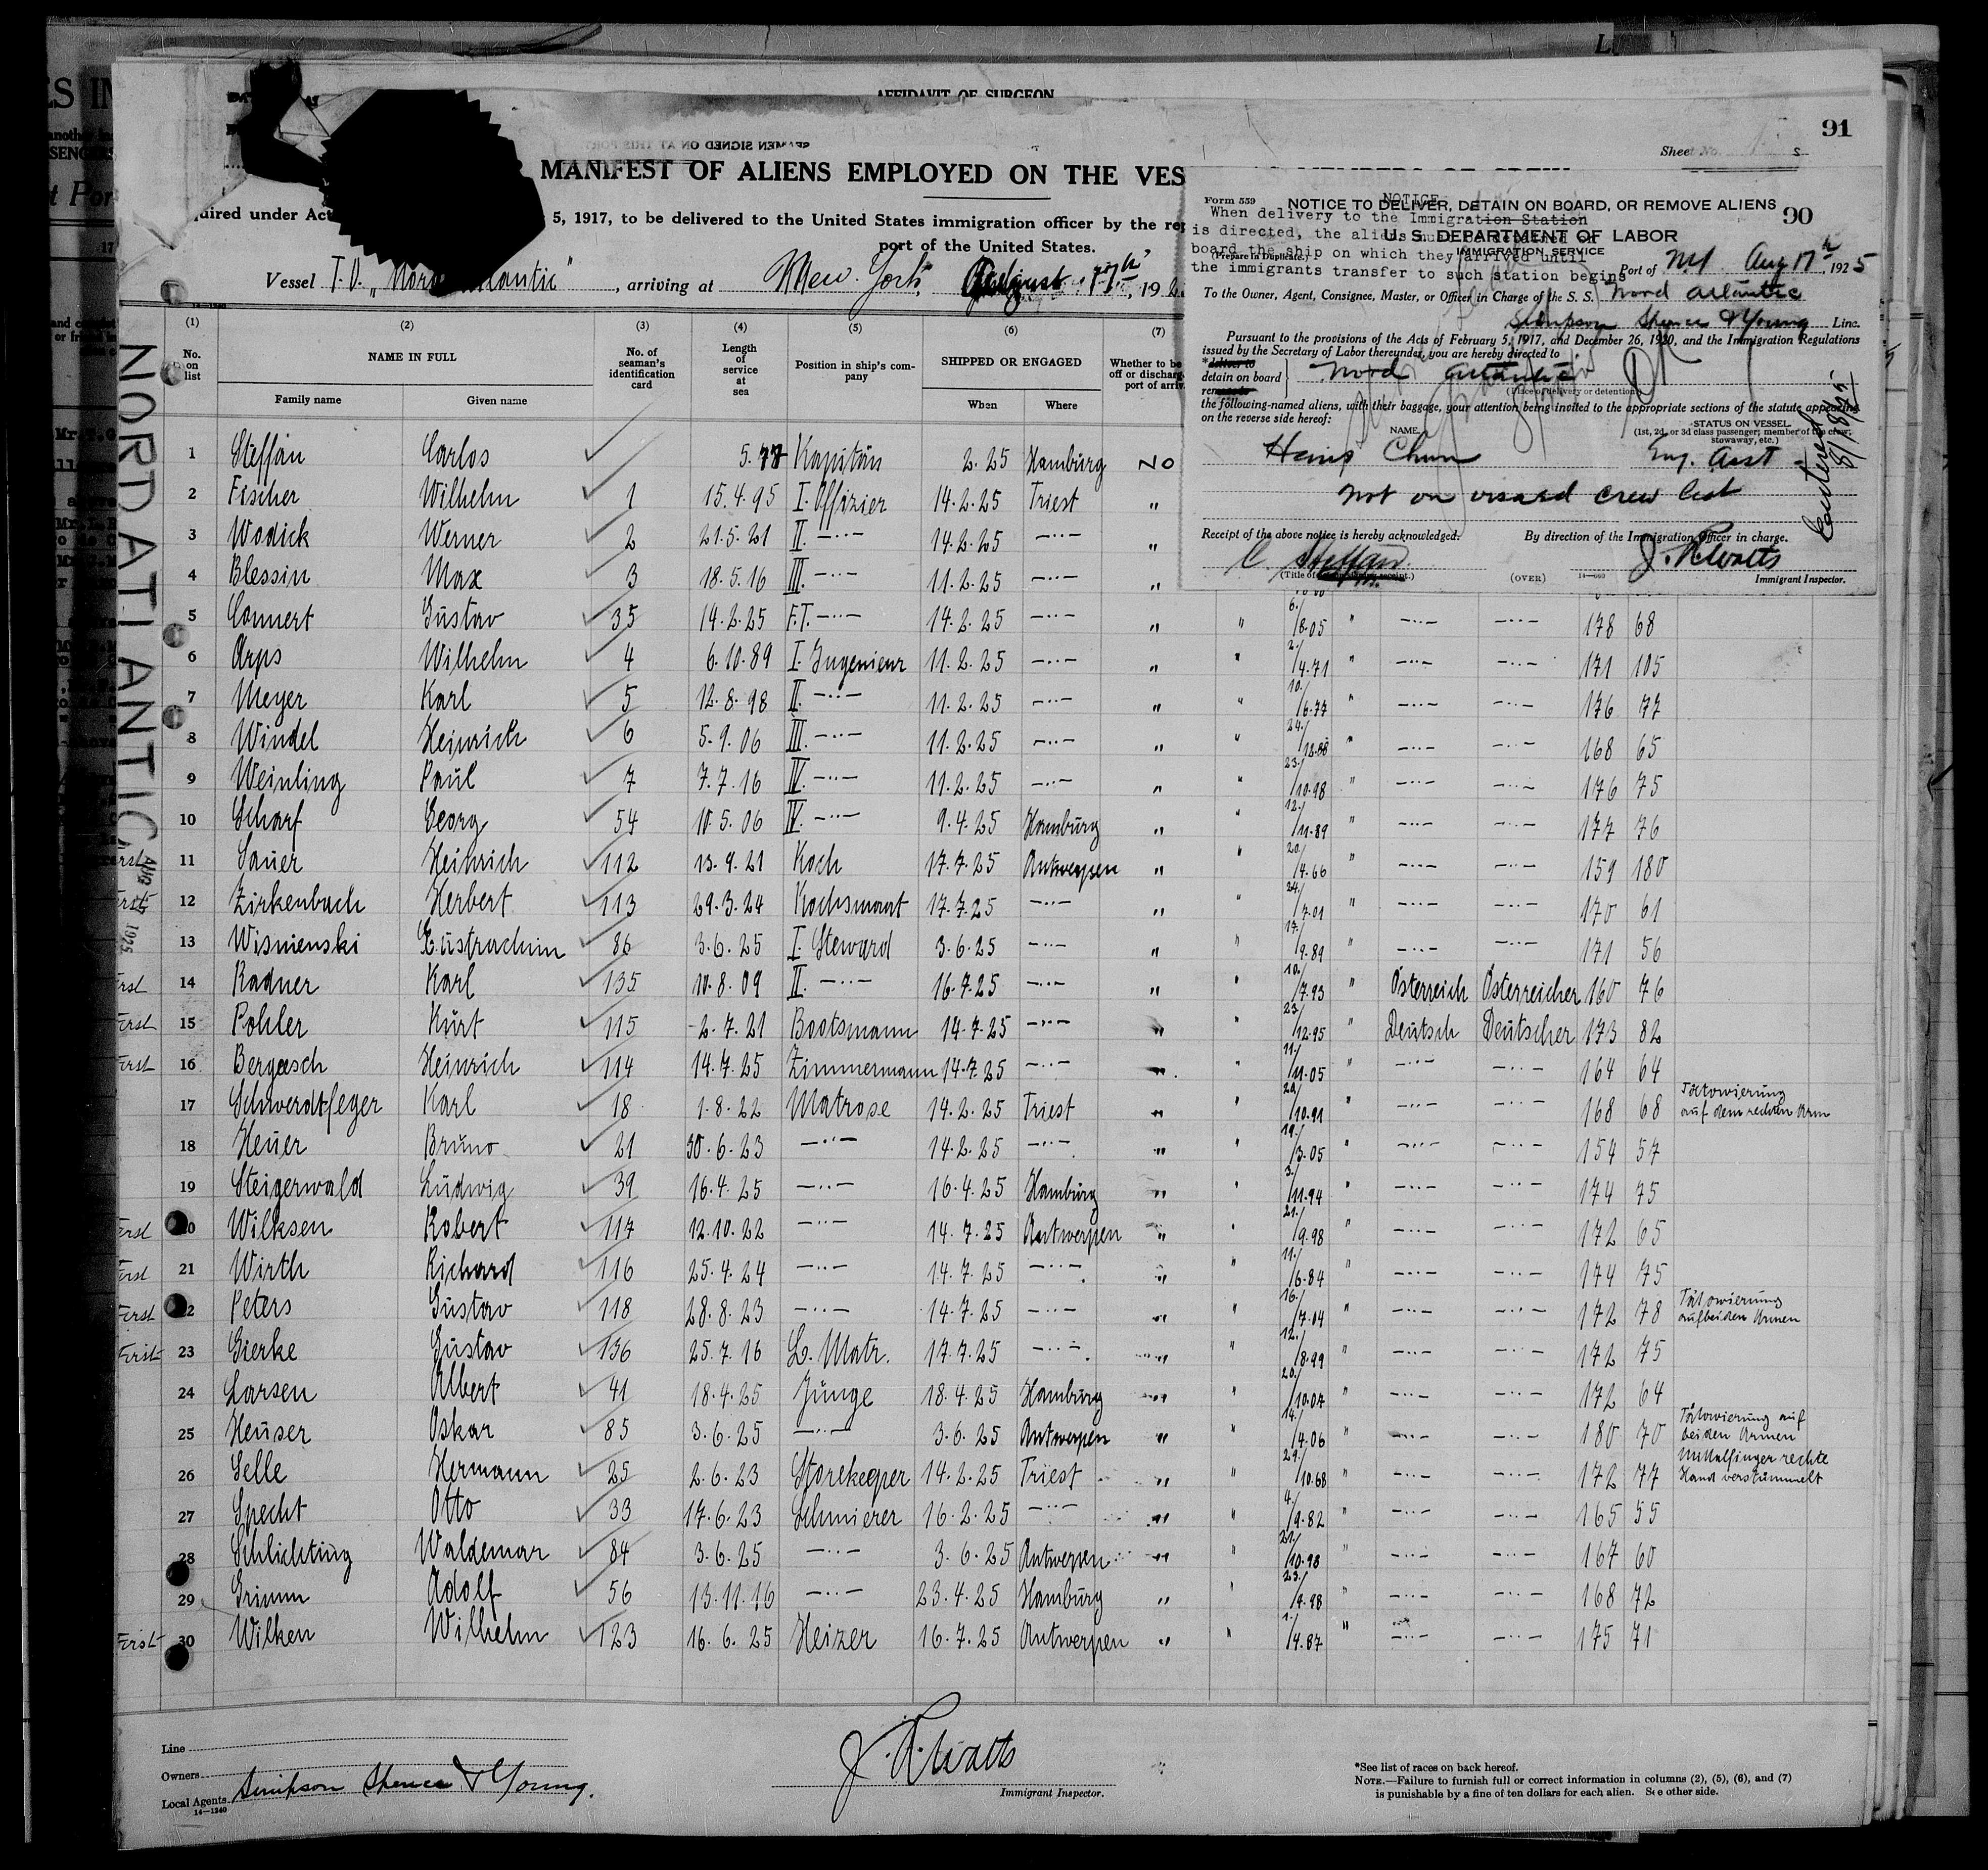 AFFIDAVIT OF SURGEON
91
SEAMEN SIGNED ON AT THIS PORT
Sheet No.
MANIFEST OF ALIENS EMPLOYED ON THE VES
quired under Act 5, 1917, to be delivered to the United States immigration officer by the re
port of the United States.
Vessel T.D. "Nord Atlantic", arriving at New York, August 17th, 192
Form 559
NOTICE
NOTICE TO DELIVER, DETAIN ON BOARD, OR REMOVE ALIENS
90
When delivery to the Immigration Station
is directed, the aliens must be detained on
board the ship on which they arrived until
the immigrants transfer to such station begins
U. S. DEPARTMENT OF LABOR
IMMIGRATION SERVICE
(Prepare in Duplicate.)
Port of NY Aug 17th, 1925
To the Owner, Agent, Consignee, Master, or Officer in Charge of the S. S. Nord Atlantic
Simpson Spence & Young Line.
Pursuant to the provisions of the Acts of February 5, 1917, and December 26, 1920, and the Immigration Regulations
issued by the Secretary of Labor thereunder, you are hereby directed to
*deliver to
detain on board
remove to
Nord Atlantic
(Place of delivery or detention)
the following-named aliens, with their baggage, your attention being invited to the appropriate sections of the statute appearing
on the reverse side hereof:
NAME.
STATUS ON VESSEL
(1st, 2d, or 3d class passenger; member of the crew;
stowaway, etc.)
Eng. Asst
Not on visaed crew list
Entered 8/18/25
Receipt of the above notice is hereby acknowledged.
By direction of the Immigration Officer in charge.
C. Steffan
J. R. Watts
(OVER)
Immigrant Inspector.
NORD ATLANTIC
AUG 17 1925
14-1240
(1) (2) (3) (4) (5) (6) (7)
No. on list
NAME IN FULL
Family name Given name
No. of seaman's identification card
Length of service at sea
Position in ship's company
SHIPPED OR ENGAGED
When Where
Whether to be
off or discharg
port of arriv
1 Steffan Carlos Kapitän 2.25 Hamburg NO
2 Fischer Wilhelm 1 15.4.95 I. Offizier 14.2.25 Triest "
3 Wodick Werner 2 21.5.21 II. –"– 14.2.25 –"– "
4 Blessin Max 3 18.5.16 III. –"– 11.2.25 –"– "
5 Connert Gustav 35 14.2.25 F.T. –"– 14.2.25 –"– " " 6./8.05 " –"– –"– 178 68
6 Arps Wilhelm 4 6.10.89 I. Ingenieur 11.2.25 –"– " " 2./4.71 " –"– –"– 171 105
7 Meyer Karl 5 12.8.98 II. –"– 11.2.25 –"– " " 10./6.77 " –"– –"– 176 77
8 Windel Heinrich 6 5.9.06 III. –"– 11.2.25 –"– " " 24./12.88 " –"– –"– 168 65
9 Weinling Paul 7 7.7.16 IV. –"– 11.2.25 –"– " " 23./10.98 " –"– –"– 176 75
10 Scharf Georg 54 10.5.06 IV. –"– 9.4.25 Hamburg " " 12./11.89 " –"– –"– 177 76
11 Sauer Heinrich 112 13.9.21 Koch 17.7.25 Antwerpen " " 20./4.66 " –"– –"– 159 180
First 12 Zirkenbach Herbert 113 29.3.24 Kochsmaat 17.7.25 –"– " " 24./7.01 " –"– –"– 170 61
13 Wisnienski Eustrachim 86 3.6.25 I. Steward 3.6.25 –"– " " 17./9.89 " –"– –"– 171 56
First 14 Radner Karl 135 10.8.09 II. –"– 16.7.25 –"– " " 10./7.93 " Österreich Österreicher 160 76
First 15 Pohler Kurt 115 2.7.21 Bootsmann 14.7.25 –"– " " 23./12.95 " Deutsch Deutscher 173 82
First 16 Bergasch Heinrich 114 14.7.25 Zimmermann 14.7.25 –"– " " 11./11.05 " –"– –"– 164 64
17 Schwerdtfeger Karl 18 1.8.22 Matrose 14.2.25 Triest " " 20./10.91 " –"– –"– 168 68 Tätowierung auf dem rechten Arm
18 Heuer Bruno 21 30.6.23 –"– 14.2.25 –"– " " 19./3.05 " –"– –"– 154 57
19 Steigerwald Ludwig 39 16.4.25 –"– 16.4.25 Hamburg " " 3./11.94 " –"– –"– 174 75
First 20 Wilksen Robert 117 12.10.22 –"– 14.7.25 Antwerpen " " 21./9.98 " –"– –"– 172 65
First 21 Wirth Richard 116 25.4.24 –"– 14.7.25 –"– " " 11./6.84 " –"– –"– 174 75
First 22 Peters Gustav 118 28.8.23 –"– 14.7.25 –"– " " 16./7.04 " –"– –"– 172 78 Tätowierung auf beiden Armen
First 23 Gierke Gustav 136 25.7.16 L. Matr. 17.7.25 –"– " " 12./8.99 " –"– –"– 172 75
24 Larsen Albert 41 18.4.25 Junge 18.4.25 Hamburg " " 20./10.07 " –"– –"– 172 64
25 Heuser Oskar 85 3.6.25 –"– 3.6.25 Antwerpen " " 14./4.06 " –"– –"– 180 70 Tätowierung auf beiden Armen
26 Selle Hermann 25 2.6.23 Storekeeper 14.2.25 Triest " " 29./10.68 " –"– –"– 172 77 Mittelfinger rechte Hand verstümmelt
27 Specht Otto 33 17.6.23 Schmierer 16.2.25 –"– " " 4./9.82 " –"– –"– 165 55
28 Schlichting Waldemar 84 3.6.25 –"– 3.6.25 Antwerpen " " 21./10.98 " –"– –"– 167 60
29 Grimm Adolf 56 13.11.16 –"– 23.4.25 Hamburg " " 23./9.98 " –"– –"– 168 72
First 30 Wilken Wilhelm 123 16.6.25 Heizer 16.7.25 Antwerpen " " 1./4.87 " –"– –"– 175 71
Line
Owners
Local Agents Simpson Spence & Young.
14—1240
J. R. Watts
Immigrant Inspector.
*See list of races on back hereof.
NOTE.—Failure to furnish full or correct information in columns (2), (5), (6), and (7)
is punishable by a fine of ten dollars for each alien. See other side.